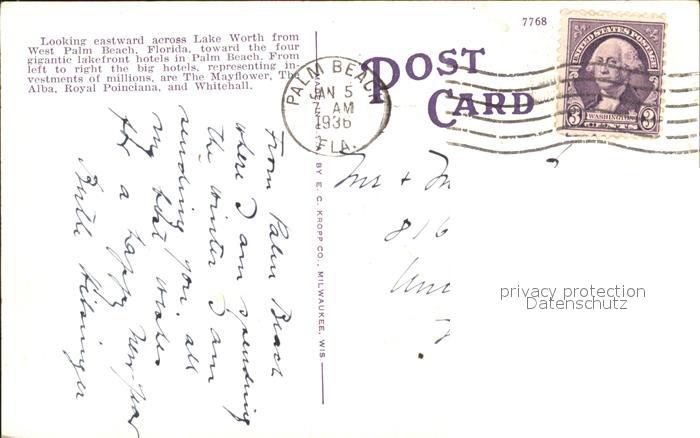 Looking eastward across Lake Worth from
West Palm Beach, Florida, toward the four
gigantic lakefront hotels in Palm Beach. From
left to right the big hotels, representing in
vestments of millions, are The Mayflower, The
Alba, Royal Poinciana, and Whitehall.
From Palm Beach
where I am spending
the winter I am
sending you all
my best wishes
for a happy New Year
7768
POST
CARD
PALM BEACH
JAN 5
7 AM
1936
FLA.
UNITED STATES POSTAGE
3 WASHINGTON 3
CENTS
BY E. C. KROPP CO., MILWAUKEE, WIS
Mr + M
816
privacy protection
Datenschutz